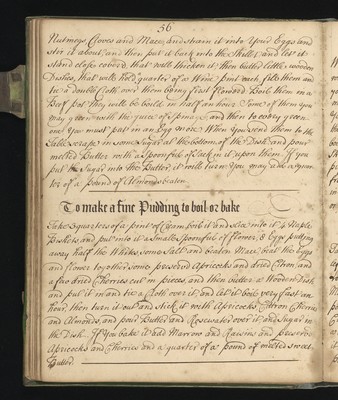 56
Nutmegs Cloves and Mace, and strain it into Your Eggs and
stir it about, and then put it back into the Skillet, and let it
stand close coverd, that will thicken it, then butter little wooden
Dishes, that will hold quarter of a Wine pint each, fill them and
tie a double Cloth over them being first flowerd Boil them in a
Beef pot they will be boild in half an hour Some of them you
may green with the juice of Spinage, and then to every green
one you must put in an Egg more When You send them to the
Table scrape in some Sugar at the bottom of the Dish and pour
melted Butter with a Spoonful of Sack in it upon them If you
put the Sugar into the Butter, it will turn You may add a quar
ter of a pound of Almonds beaten
To make a fine Pudding to boil or bake
Take 3 quarters of a pint of Cream boil it and slice into it 4 Naple
Biskets, and put into it a small Spoonful of flower, 8 Eggs putting
away half the Whites, some Salt and beaten Mace, beat the Eggs
and flower together, some preserved Apricocks and dried Citron, and
a few dried Cherries cut in pieces, and then butter a Wooden Dish
and put it in and tie a Cloth over it, and let it boil very fast an
hour, then turn it out and stick it with Apricocks Citron Cherries
and Almonds, and pour Butter and Rosewater over it and Sugar in
the Dish If You bake it add Marrow and Raisins and preserved
Apricocks and Cherries and a quarter of a pound of melted sweet
Butter